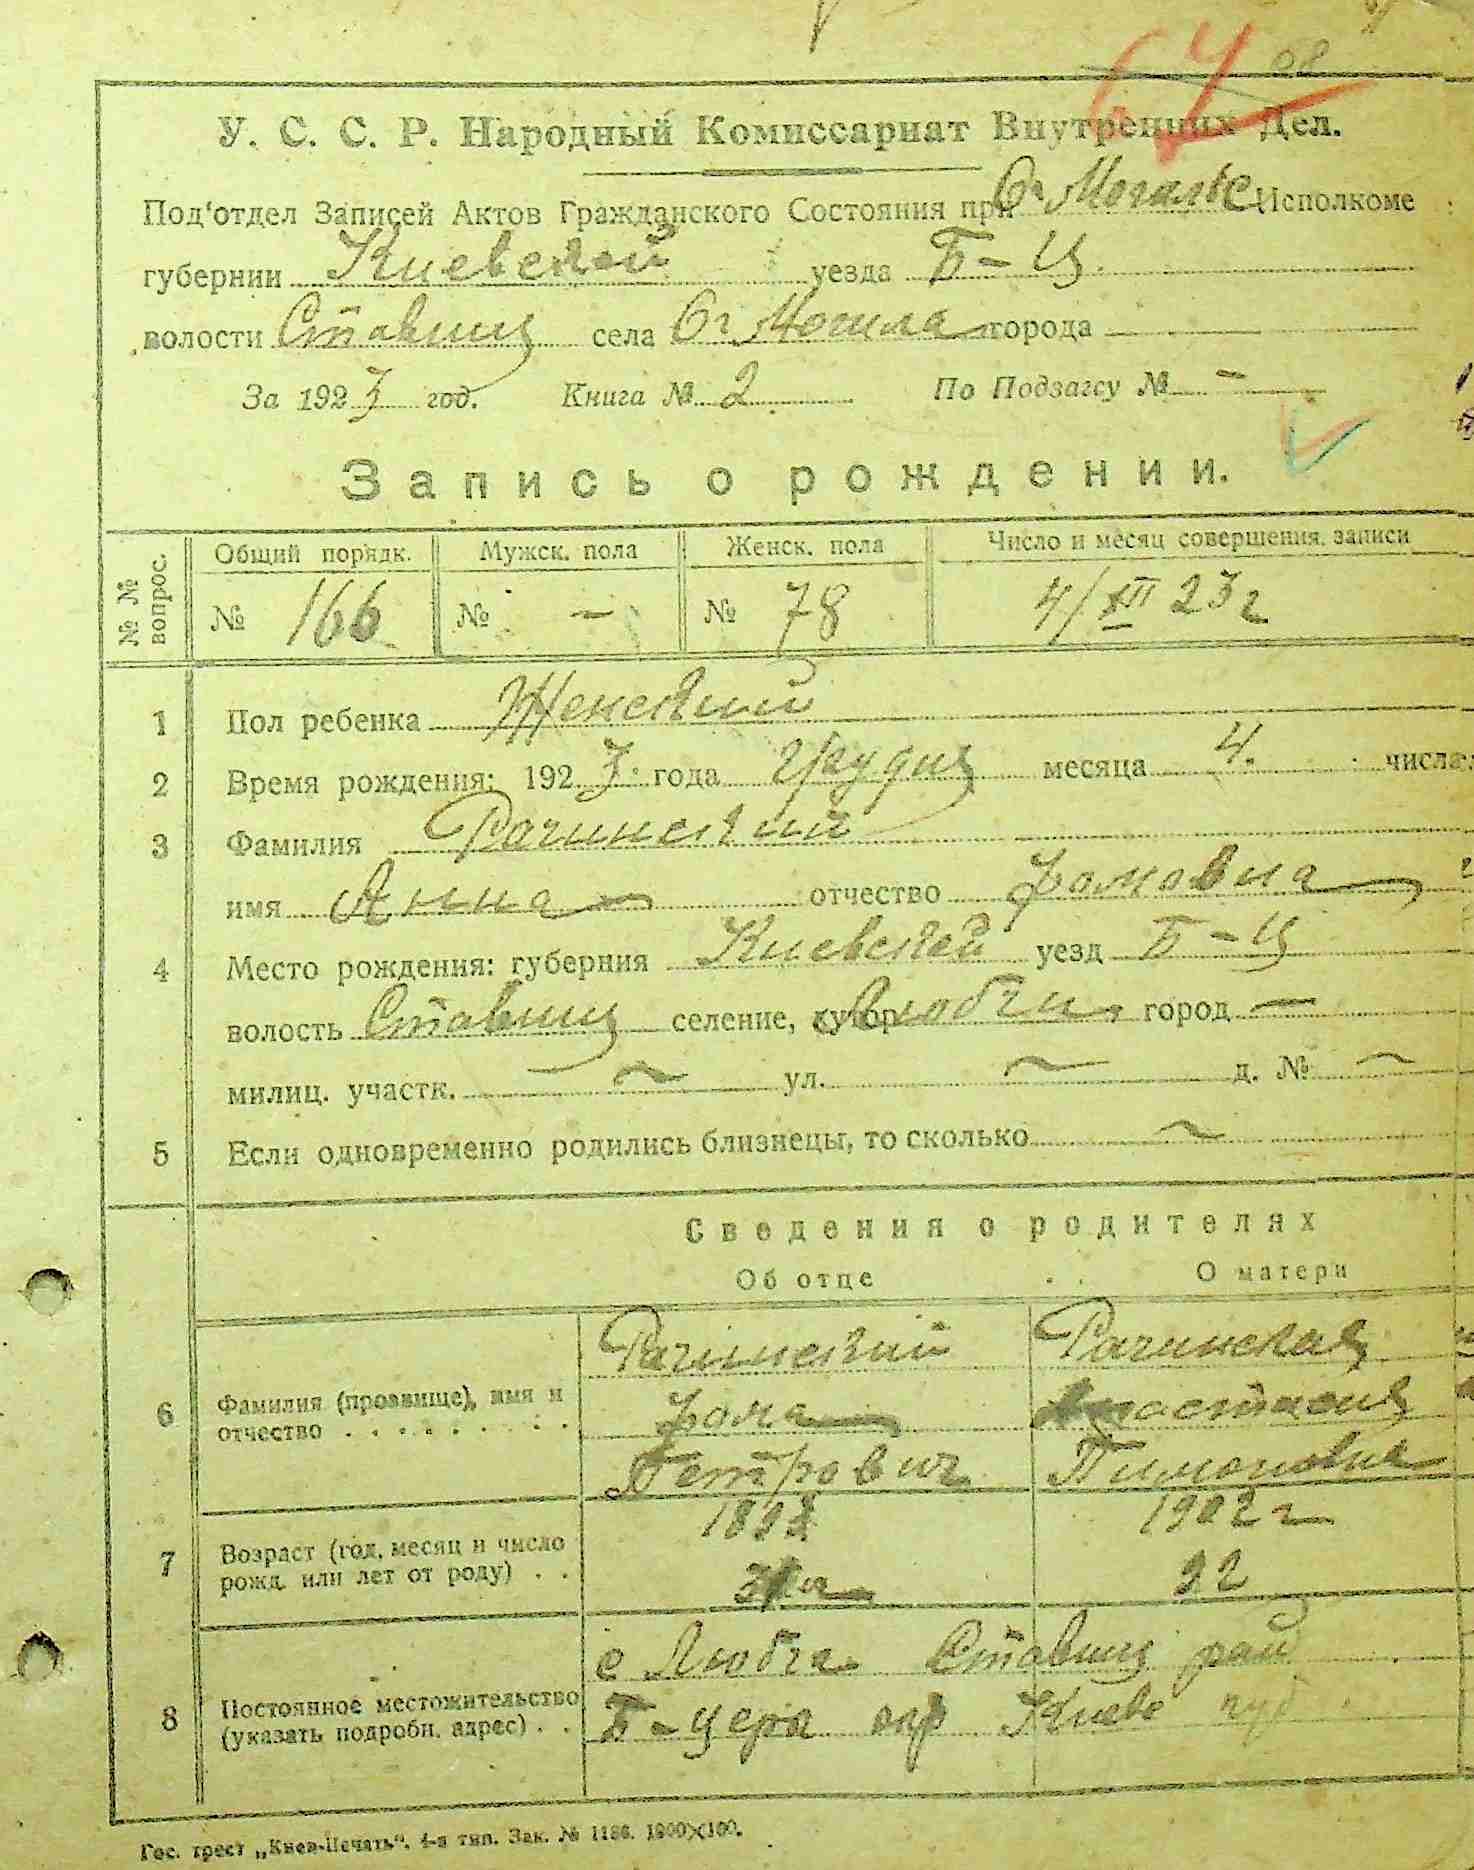 64
У. С. С. Р. Народный Комиссариат Внутренних Дел.
Под'отдел Записей Актов Гражданского Состояния при Ст Могильс Исполкоме
губернии Киевской уезда Б-Ц.
волости Ставищ села Ст Могила города —
За 1923 год. Книга № 2 По Подзагсу № -
Запись о рождении.
№№ вопрос. Общий порядк. Мужск. пола Женск. пола Число и месяц совершения записи
№ 166 № - № 78 4/XII 23 г
1 Пол ребенка Женский
2 Время рождения: 1923 года Грудня месяца 4. числа
3 Фамилия Рачинский
имя Анна отчество Фомовна
4 Место рождения: губерния Киевской уезд Б-Ц
волость Ставищ селение, хутор Любчи город —
милиц. участк. ~ ул. ~ д. № ~
5 Если одновременно родились близнецы, то сколько ~
Сведения о родителях
Об отце О матери
6 Фамилия (прозвище), имя и отчество
Рачинский Рачинская
Фома Анастасия
Петрович Тимоновна
7 Возраст (год, месяц и число рожд. или лет от роду)
1902 г
22
8 Постоянное местожительство (указать подробн. адрес)
с Любча Ставищ рай
Б-церк окр Киевс губ
Гос. трест „Киев-Печать“. 4-я тип. Зак. № 1186. 1900×100.